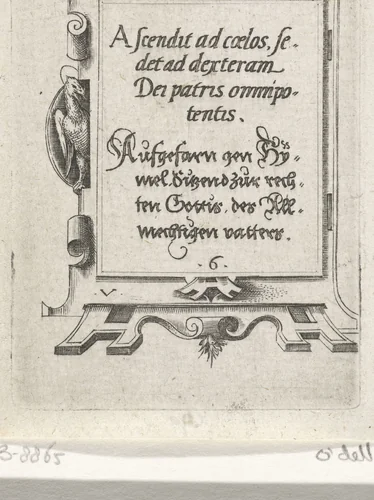 Ascendit ad cœlos, se-
det ad dexteram
Dei patris omnipo-
tentis.
Aufgefarn gen Hÿ-
mel. Sitzend zur rech-
ten Gottis, des All-
mechtigen vatters.
. 6 .
V
B-8865
O'dell